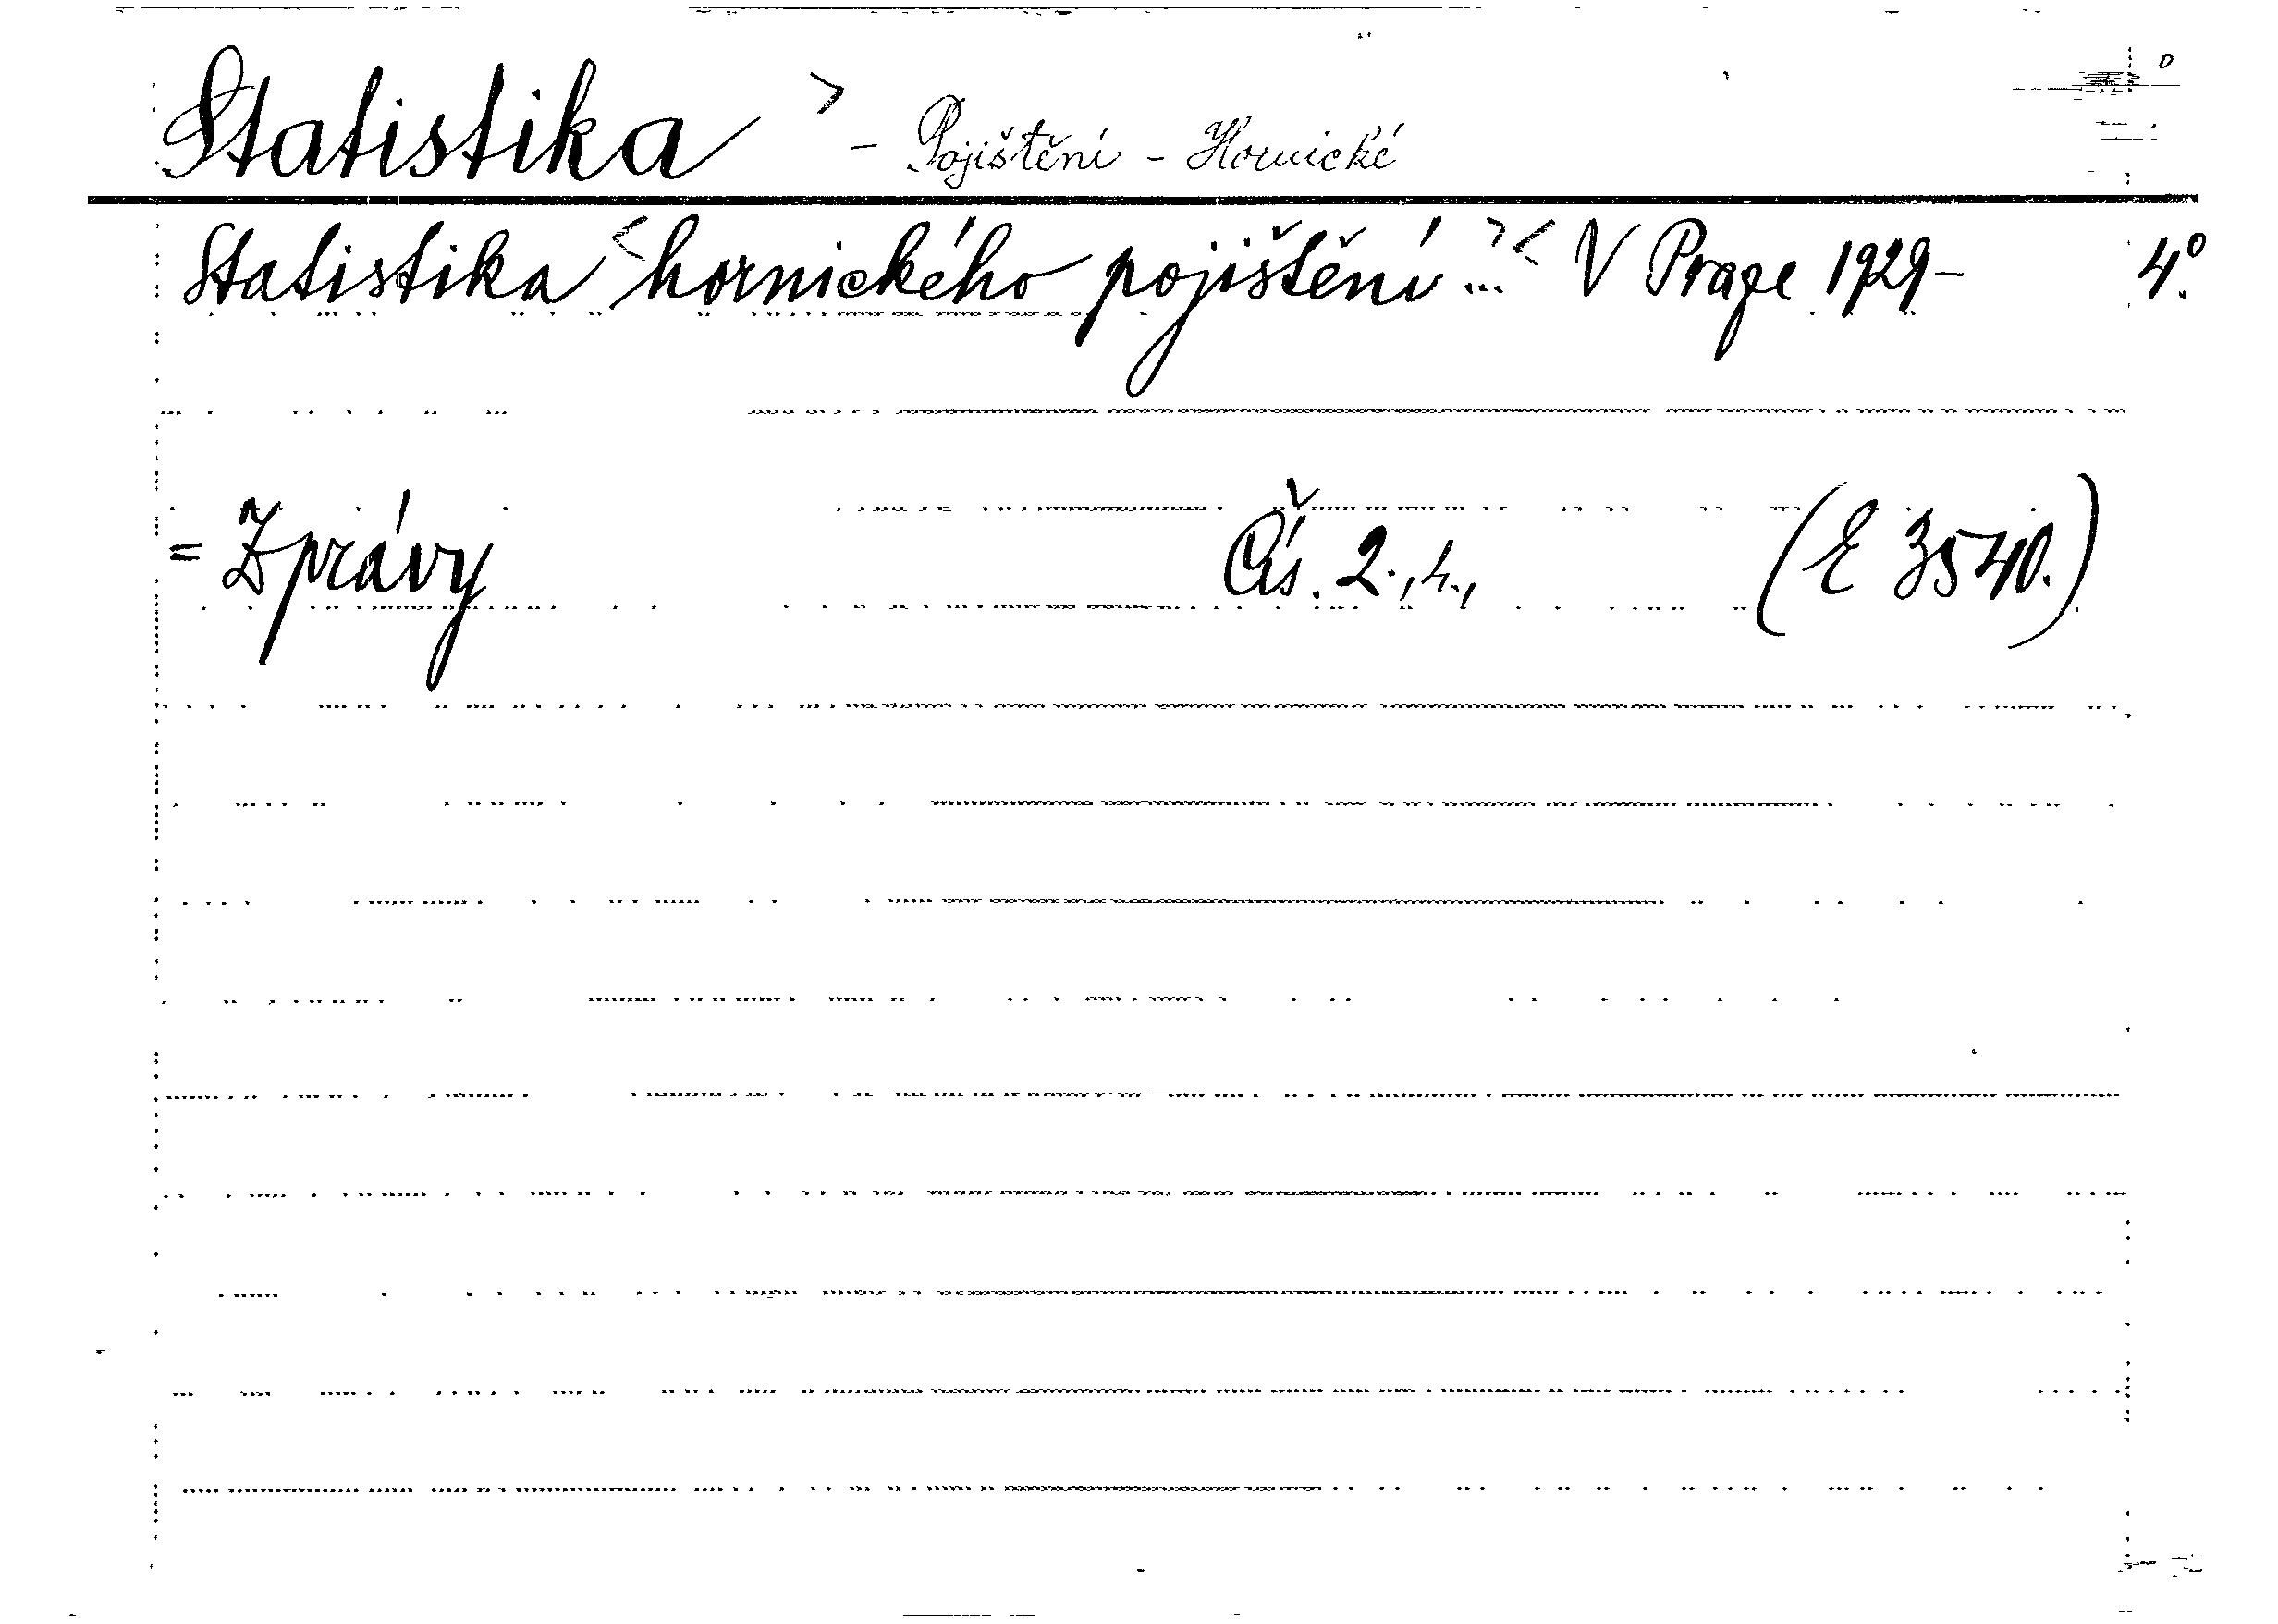 Statistika > - Pojištění - Hornické
Statistika < hornického pojištění ... > < V Praze 1929- 4°.
= Zprávy Čís. 2., 4., (E 3540.)